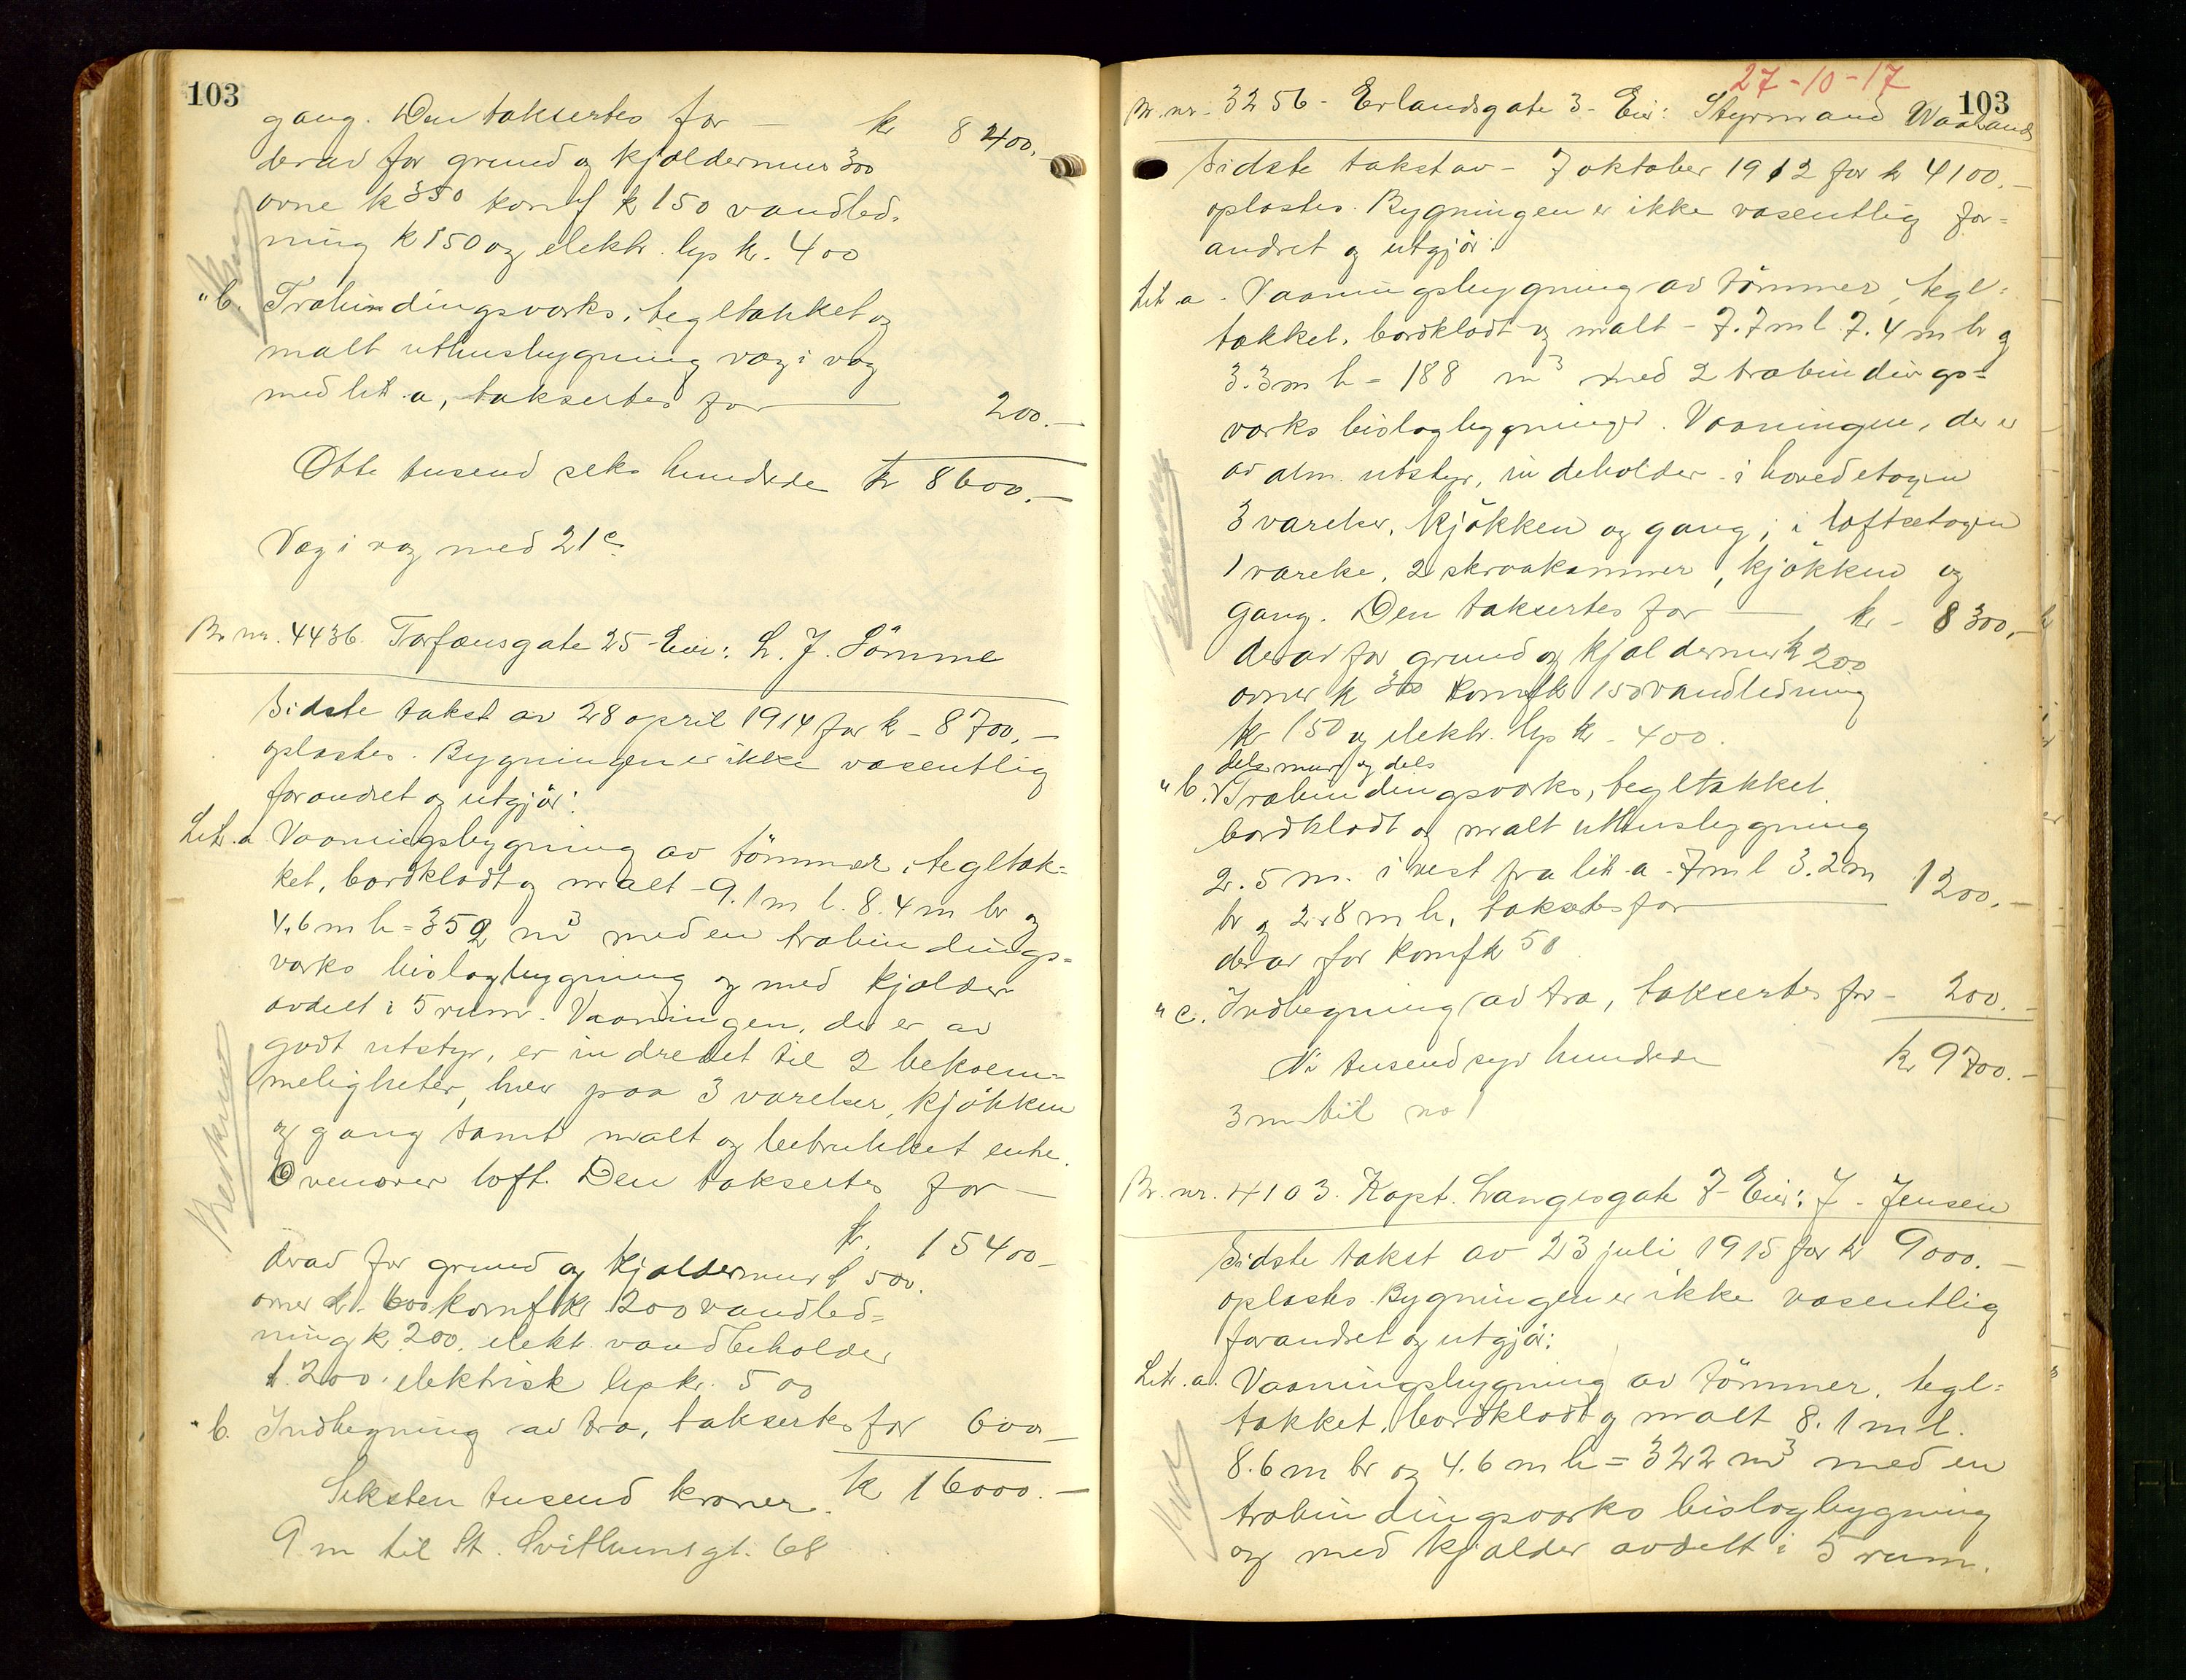 103
gang. Den taksertes for — kr 8400.—
derav for grund og kjældermur 300
ovne k 350 komf k 150 vandled-
ning k 150 og elektr. lys kr. 400
" b. Træbindingsværks, tegltækket og
malt uthusbygning væg i væg
med litr. a, taksertes for — 200.—
Otte tusend seks hundrede kr 8600.—
Væg i væg med 21c
Br. nr. 4436. Torfæusgate 25 - Eier: L. J. Sömme
Sidste takst av 28 april 1914 for k - 8700,—
oplæstes. Bygningen er ikke væsentlig
forandret og utgjör:
Litr. a Vaaningsbygning av tömmer, tegltæk-
ket, bordklædt og malt - 9.1 m l. 8.4 m br og
4.6 m h = 352 m³ med en træbindings-
værks bislagbygning og med kjælder
avdelt i 5 rum. Vaaningen, der er av
godt utstyr, er indredet til 2 bekvem-
meligheter, hver paa 3 værelser, kjökken
og gang samt malt og betrukket entre.
Ovenover loft. Den taksertes for —
kr. 15400—
derav for grund og kjældermur k 500.
ovner k. 600 komf kr 200 vandled-
ning kr. 200. elektr. vandbeholder
k. 200. elektrisk lys kr. 500
" b. Indhegning av træ, taksertes for 600—
Seksten tusend kroner. kr 16000.—
9 m til St. Svithunsgt. 68
27-10-17
103
Br. nr. 3256 - Erlandsgate 3 - Eier: Styrmand Waaland
Sidste takst av - 7 oktober 1912 for kr 4100.—
oplæstes. Bygningen er ikke væsentlig for-
andret og utgjör:
Litr. a - Vaaningsbygning av tömmer, tegl-
tækket, bordklædt og malt - 7.7 m l 7.4 m br og
3.3 m h = 188 m³ med 2 træbindings-
værks bislagbygninger. Vaaningen, der er
av alm. utstyr, indeholder i hovedetagen
3 værelser, kjökken og gang; i loftsetagen
1 værelse, 2 skraakammer, kjökken og
gang. Den taksertes for — kr - 8300,—
derav for grund og kjældermur k 200
ovner k 300 komf k 150 vandledning
kr 150 og elektr. lys kr - 400.
dels mur og dels
" b. Træbindingsværks, tegltækket
bordklædt og malt uthusbygning
2.5 m. i vest fra litr. a - 7 m l 3.2 m
br og 2.8 m h, taksertes for — 1200.—
derav for komf k 50
" c. Indhegning av træ, taksertes for - 200.—
Ni tusend syv hundrede kr 9700.—
3 m til no 1
Br. nr. 4103. Kapt. Langesgate 7 - Eier: J. Jensen
Sidste takst av 23 juli 1915 for kr 9000.—
oplæstes. Bygningen er ikke væsentlig
forandret og utgjör:
Litr. a. Vaaningsbygning av tömmer, tegl-
tækket, bordklædt og malt 8.1 m l.
8.6 m br og 4.6 m h = 322 m³ med en
træbindingsværks bislagbygning
og med kjælder avdelt i 5 rum.